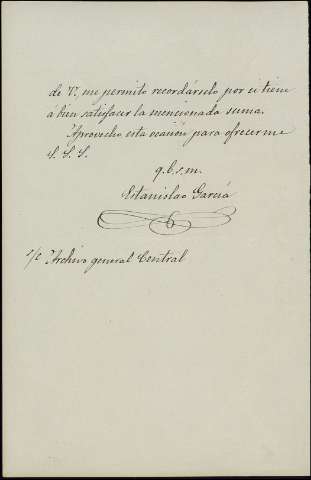 de V, me permito recordárselo por si tiene
á bien satisfacer la mencionada suma.
Aprovecho esta ocasión para ofrecerme
S. S. S.
q.b.s.m.
Estanislao García
s/c Archivo general Central